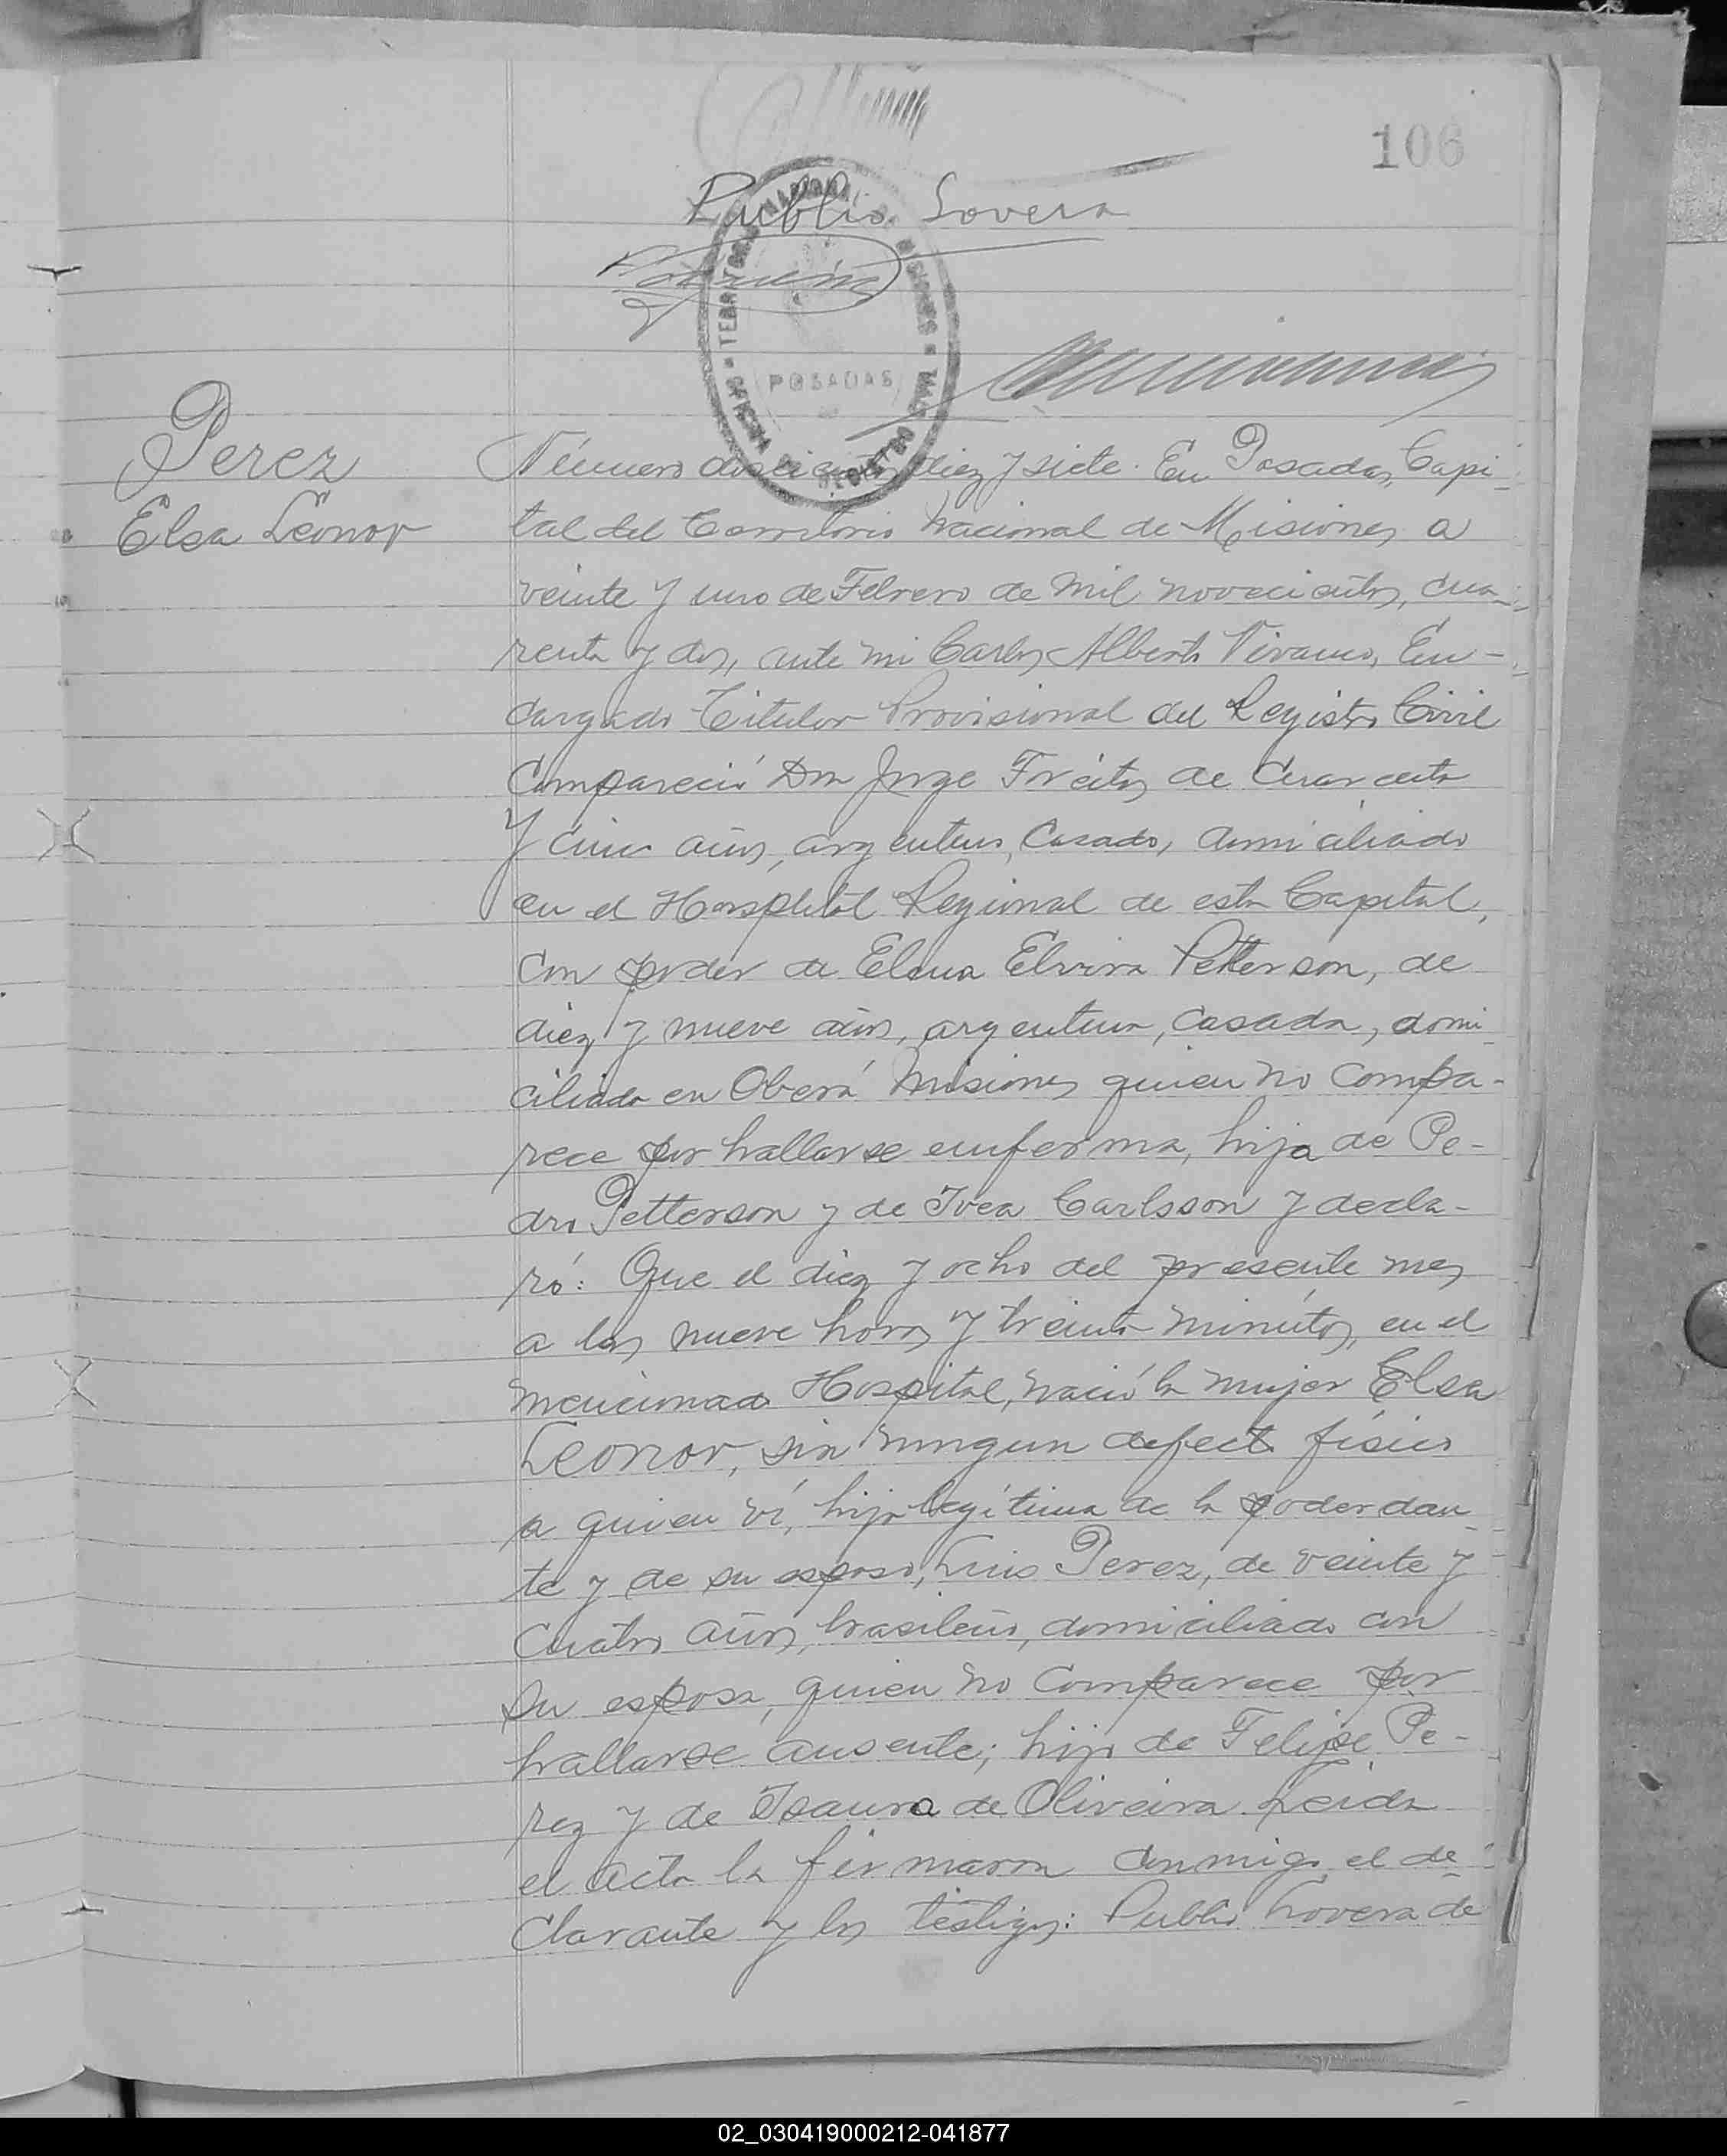 106
Publio Lovera
TERRITORIO NACIONAL DE MISIONES
OFICINA DE REGISTRO CIVIL
POSADAS
Perez
Elsa Leonor
Número doscientos diez y siete. En Posadas, Capi-
tal del Territorio Nacional de Misiones a
veinte y uno de Febrero de mil novecientos, cua-
renta y dos, ante mi Carlos Alberto Vivanco, En-
cargado Titular Provisional del Registro Civil
Compareció Don Jorge Freitas de Cuarenta
y cinco años, argentino, Casado, domiciliado
en el Hospital Regional de esta Capital,
Con poder de Elena Elvira Petterson, de
diez y nueve años, argentina, Casada, domi-
ciliada en Oberá Misiones quien no Compa-
rece por hallarse enferma, hija de Pe-
dro Petterson y de Ivea Carlsson y decla-
ró: Que el diez y ocho del presente mes
a las nueve horas y treinta minutos, en el
mencionado Hospital, nació la mujer Elsa
Leonor, sin ningun defecto físico
a quien ví, hija legítima de la poderdan-
te y de su esposo, Luis Perez, de veinte y
Cuatro años, brasileño, domiciliado con
su esposa, quien no Comparece por
hallarse ausente; hijo de Felipe Pe-
rez y de Isaura de Oliveira. Leida
el acta la firmaron Conmigo el de-
Clarante y los testigos: Publio Lovera de
02_030419000212-041877